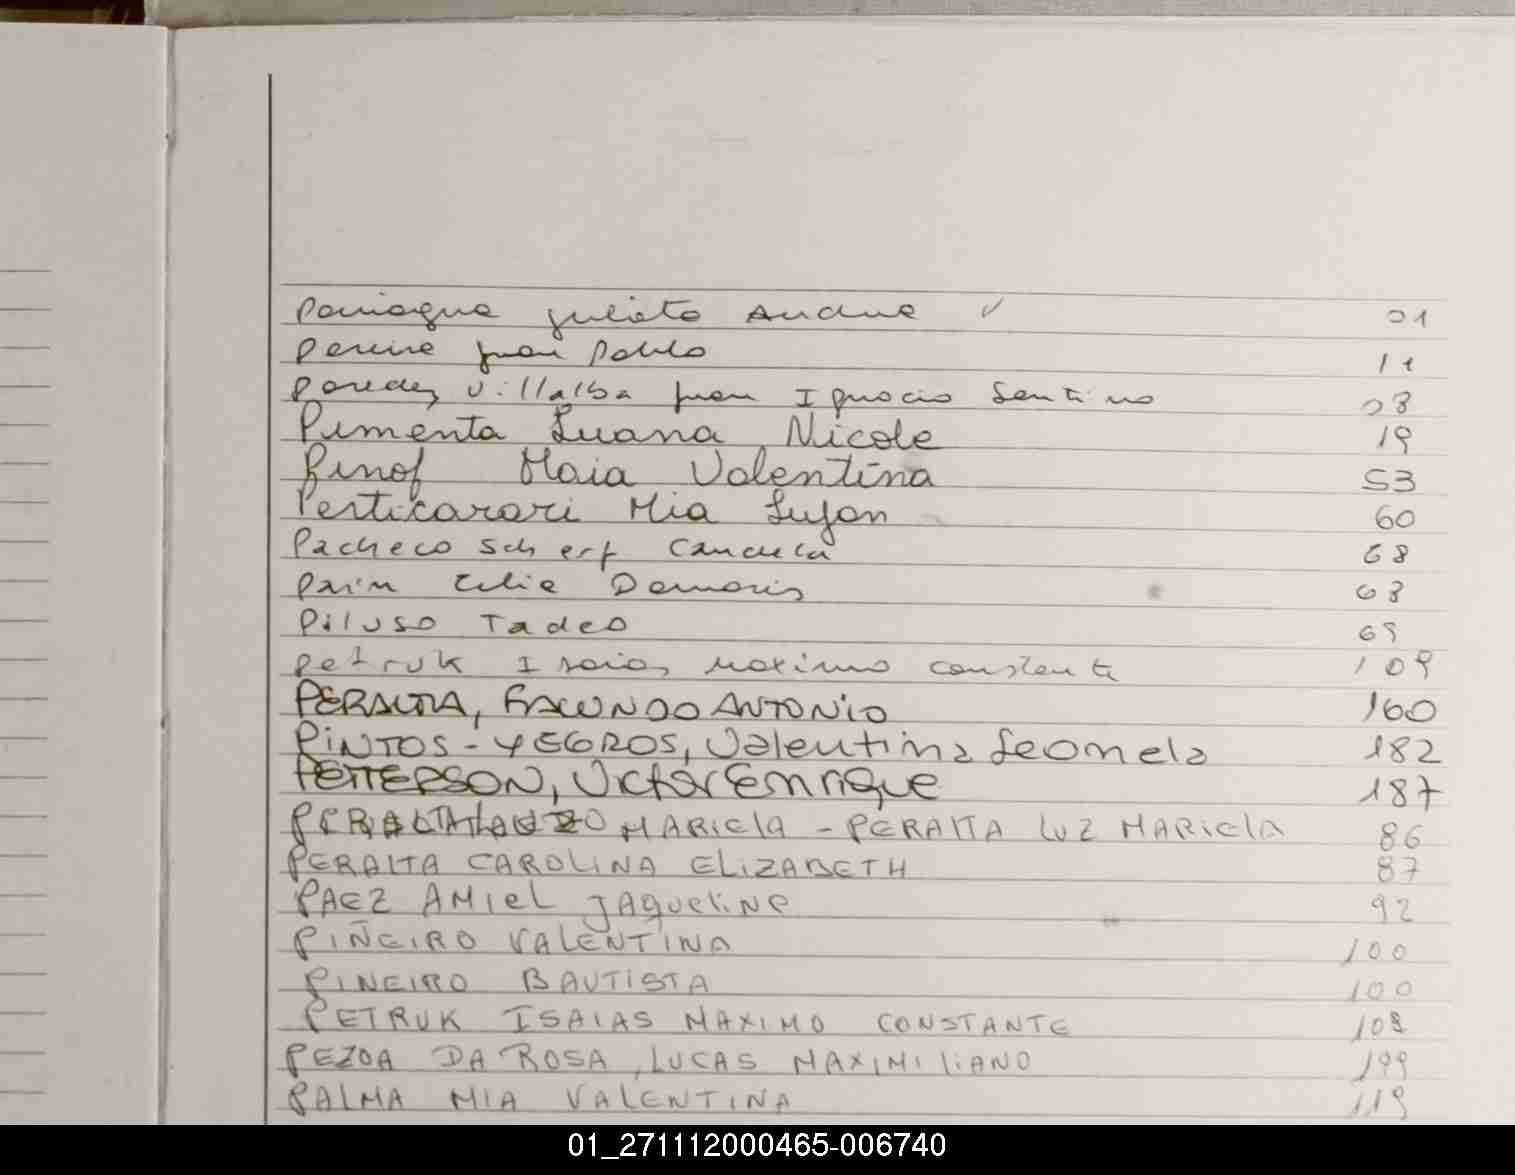 Paniagua Julieta Andrea ✓ 01
Pereira Juan Pablo 11
Paredes Villalba Juan Ignacio Santino 08
Pimenta Luana Nicole 19
Maia Valentina 53
Perticarari Mia Lujan 60
Pacheco Scherf Candela 68
Paim Demaris 68
Piluso Tadeo 69
Petruk Isaias Maximo Constante 109
PERALTA, FACUNDO ANTONIO 160
PINTOS - YEGROS, Valentina Leonela 182
PETTERSON, Victor Enrique 187
MARIELA - PERALTA LUZ MARIELA 86
PERALTA CAROLINA ELIZABETH 87
PAEZ AMIEL JAQUELINE 92
PIÑEIRO VALENTINA 100
PINEIRO BAUTISTA 100
PETRUK ISAIAS MAXIMO CONSTANTE 109
PEZOA DA ROSA, LUCAS MAXIMILIANO 199
PALMA MIA VALENTINA 119
01_271112000465-006740